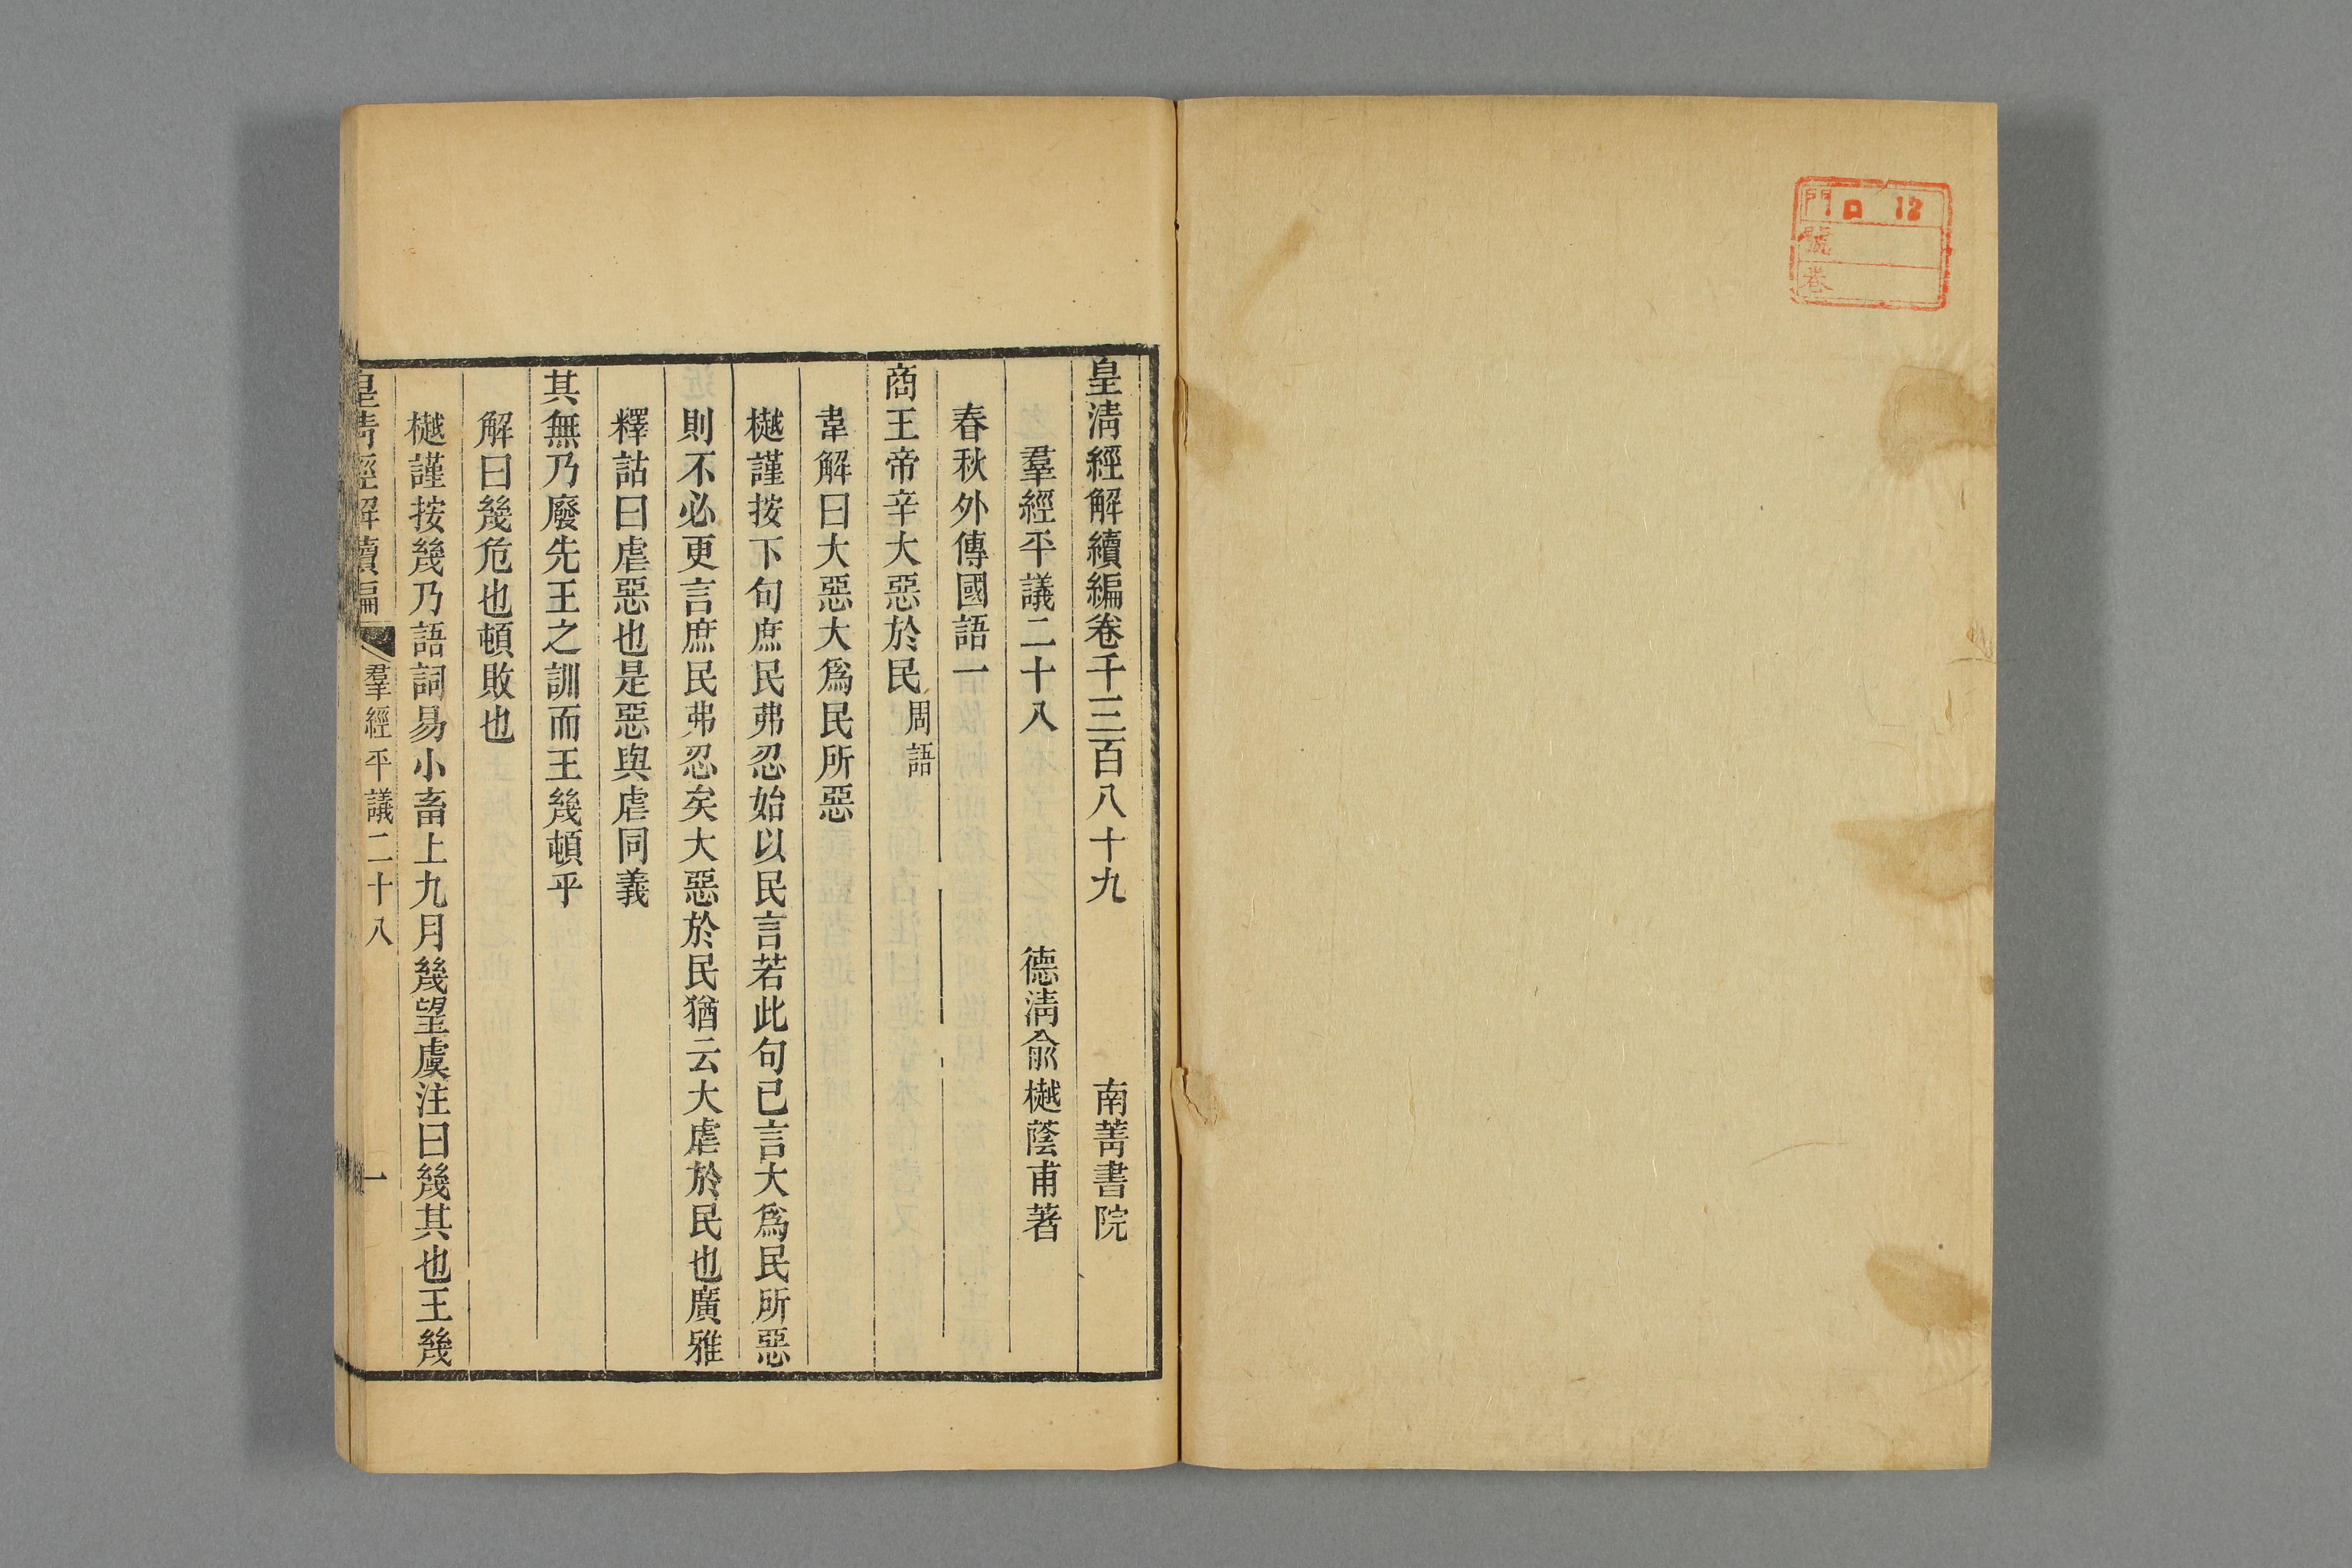 門 ロ 12
號
卷
皇淸經解續編卷千三百八十九 南菁書院
羣經平議二十八 德淸俞樾蔭甫著
春秋外傳國語一
商王帝辛大惡於民周語
韋解曰大惡大爲民所惡
樾謹按下句庶民弗忍始以民言若此句已言大爲民所惡
則不必更言庶民弗忍矣大惡於民猶云大虐於民也廣雅
釋詁曰虐惡也是惡與虐同義
其無乃廢先王之訓而王幾頓乎
解曰幾危也頓敗也
樾謹按幾乃語詞易小畜上九月幾望虞注曰幾其也王幾
皇淸經解續編 羣經平議二十八 一